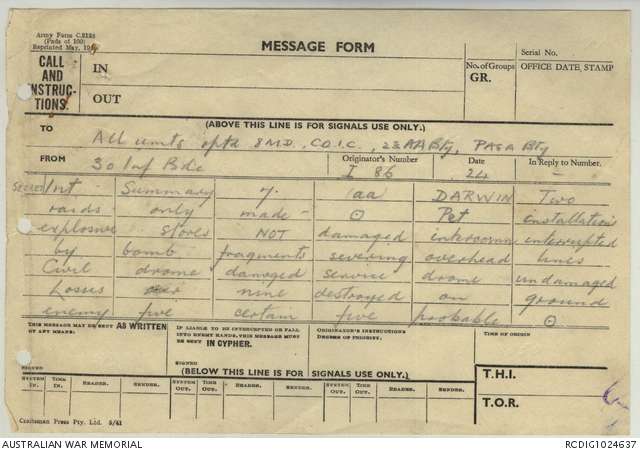 Army Form C.2128
(Pads of 100)
Reprinted May,
MESSAGE FORM
Serial No.
CALL
AND
INSTRUC-
TIONS.
IN
OUT
No. of Groups
GR.
OFFICE DATE STAMP
(ABOVE THIS LINE IS FOR SIGNALS USE ONLY.)
TO All units 8 M.D. C.O.I.C., 23 AA Bty, Bty
FROM 30 Inf Bde
Originator's Number I 86
Date 24
In Reply to Number. —
SECRET Int Summary 7. aa DARWIN Two
raids only made - ⊙ Pet installation
explosive stores NOT damaged intercomm interrupted
by bomb fragments severing overhead lines
Civil drome damaged service drome undamaged
Losses nine destroyed on ground
enemy five certain five probable ⊙
THIS MESSAGE MAY BE SENT AS WRITTEN
BY ANY MEANS:
IF LIABLE TO BE INTERCEPTED OR FALL
INTO ENEMY HANDS, THIS MESSAGE MUST
BE SENT IN CYPHER.
ORIGINATOR'S INSTRUCTIONS
DEGREE OF PRIORITY.
TIME OF ORIGIN
SIGNED
SIGNED
(BELOW THIS LINE IS FOR SIGNALS USE ONLY.)
T.H.I.
T.O.R.
SYSTEM IN. TIME IN. READER. SENDER. SYSTEM OUT. TIME OUT. READER. SENDER. SYSTEM OUT. TIME OUT. READER. SENDER.
Craftsman Press Pty. Ltd. 5/41
AUSTRALIAN WAR MEMORIAL
RCDIG1024637